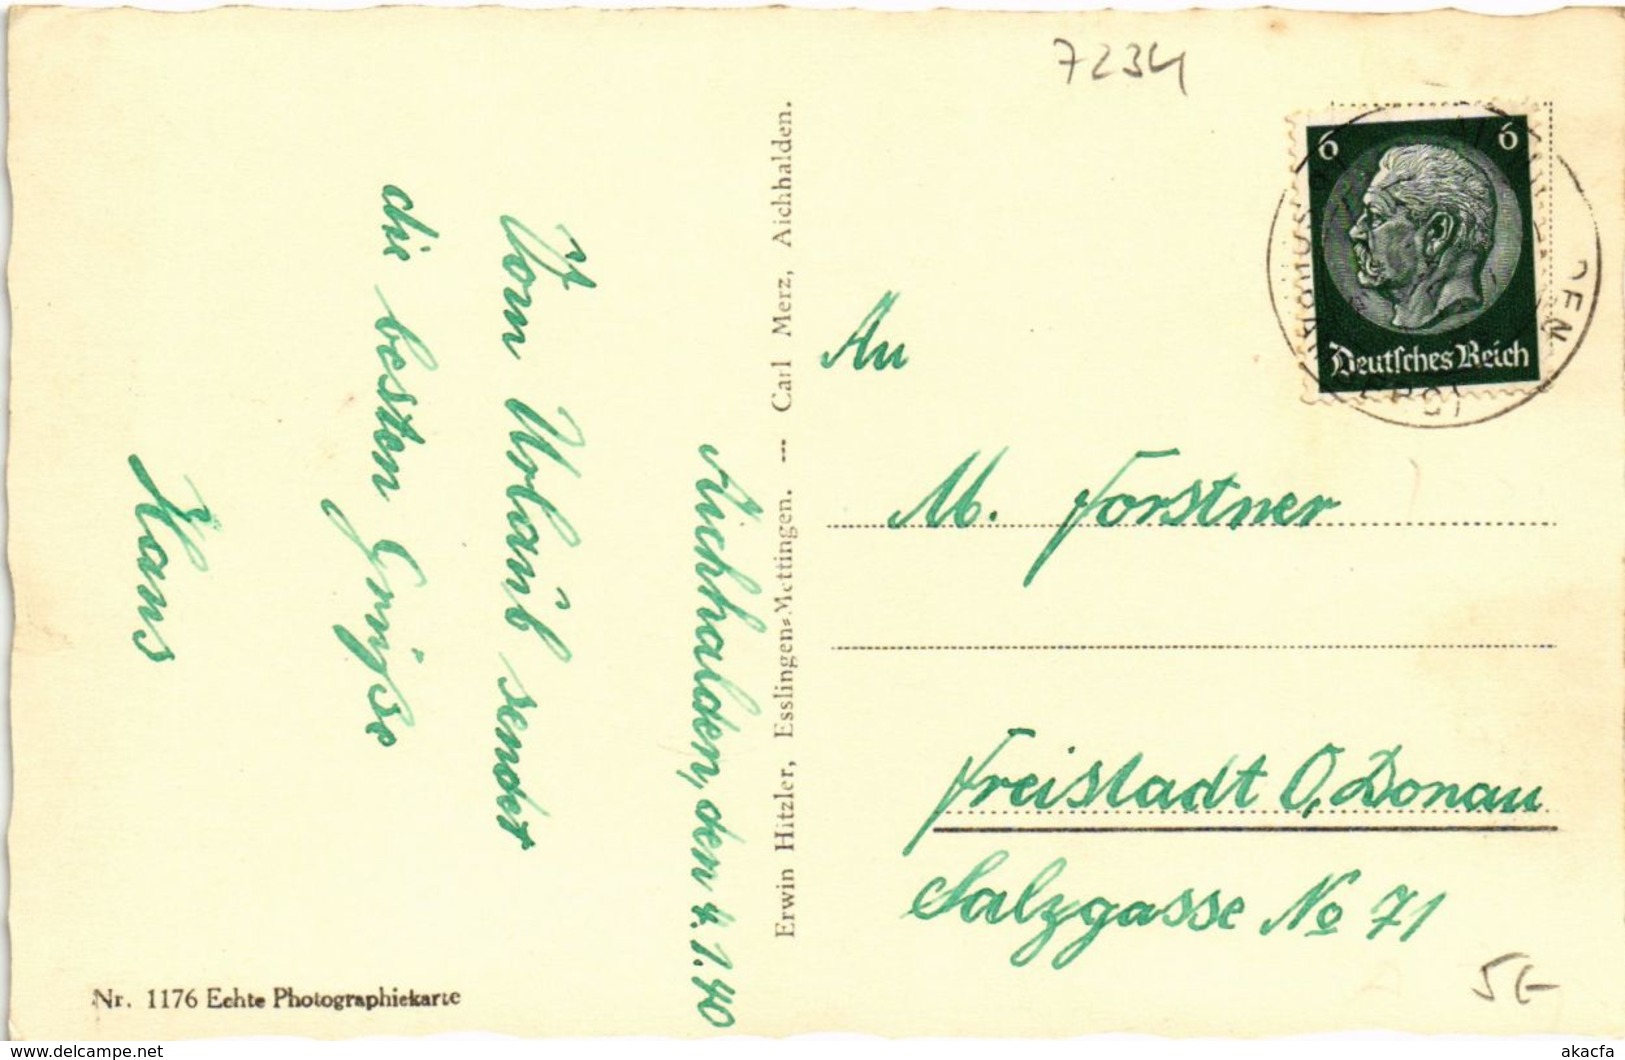 7234
6 6
Deutsches Reich
Aichhalden, den 4.1.40
Vom Urlaub sendet
die besten Grüße
Hans
Erwin Hitzler, Esslingen-Mettingen. --- Carl Merz, Aichhalden.
An
M. Forstner
Freistadt O, Donau
Salzgasse No 71
5€
Nr. 1176 Echte Photographiekarte
www.delcampe.net
akacfa